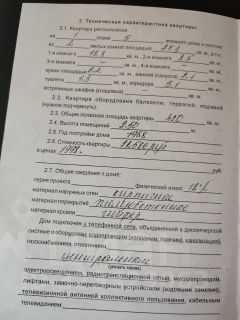 2. Техническая характеристика квартиры
2.1. Квартира расположена
на 1 этаже 5 этажного дома и состоит
из 2 жилых комнат площадью 27.3 кв. м, в т.ч.
1-я комната 18.8 кв. м, 2-я комната 8.5 кв. м,
3-я комната – кв. м, 4-я комната – кв. м,
кухни площадью 6.2 кв. м, ванной (санузла) 2.1
туалета кв. м, коридора 5.1 кв. м,
встроенных шкафов площадью кв. м
2.2. Квартира оборудована балконом, террасой, лоджией
(нужное подчеркнуть).
2.3. Общая полезная площадь кв. м.
2.4. Высота помещений 2.50 м.
2.5. Год постройки дома 1968
2.6. Стоимость квартиры руб.
в ценах
2.7. Общие сведения о доме:
серия проекта физический износ 18%
материал наружных стен кирпичные
материал перекрытий железобетонные
материал кровли шифер
Дом подключен к телефонной сети, объединенной к диспетчерской
системе и оборудован водопроводом (холодным, горячим), канализацией,
газоснабжением, отоплением,
центральным
(указать каким)
электроосвещением, радиотрансляционной сетью, мусоропроводом,
лифтами, замочно-переговорным устройством (кодовыми замками),
телевизионной антенной коллективного пользования, кабельным
телевидением